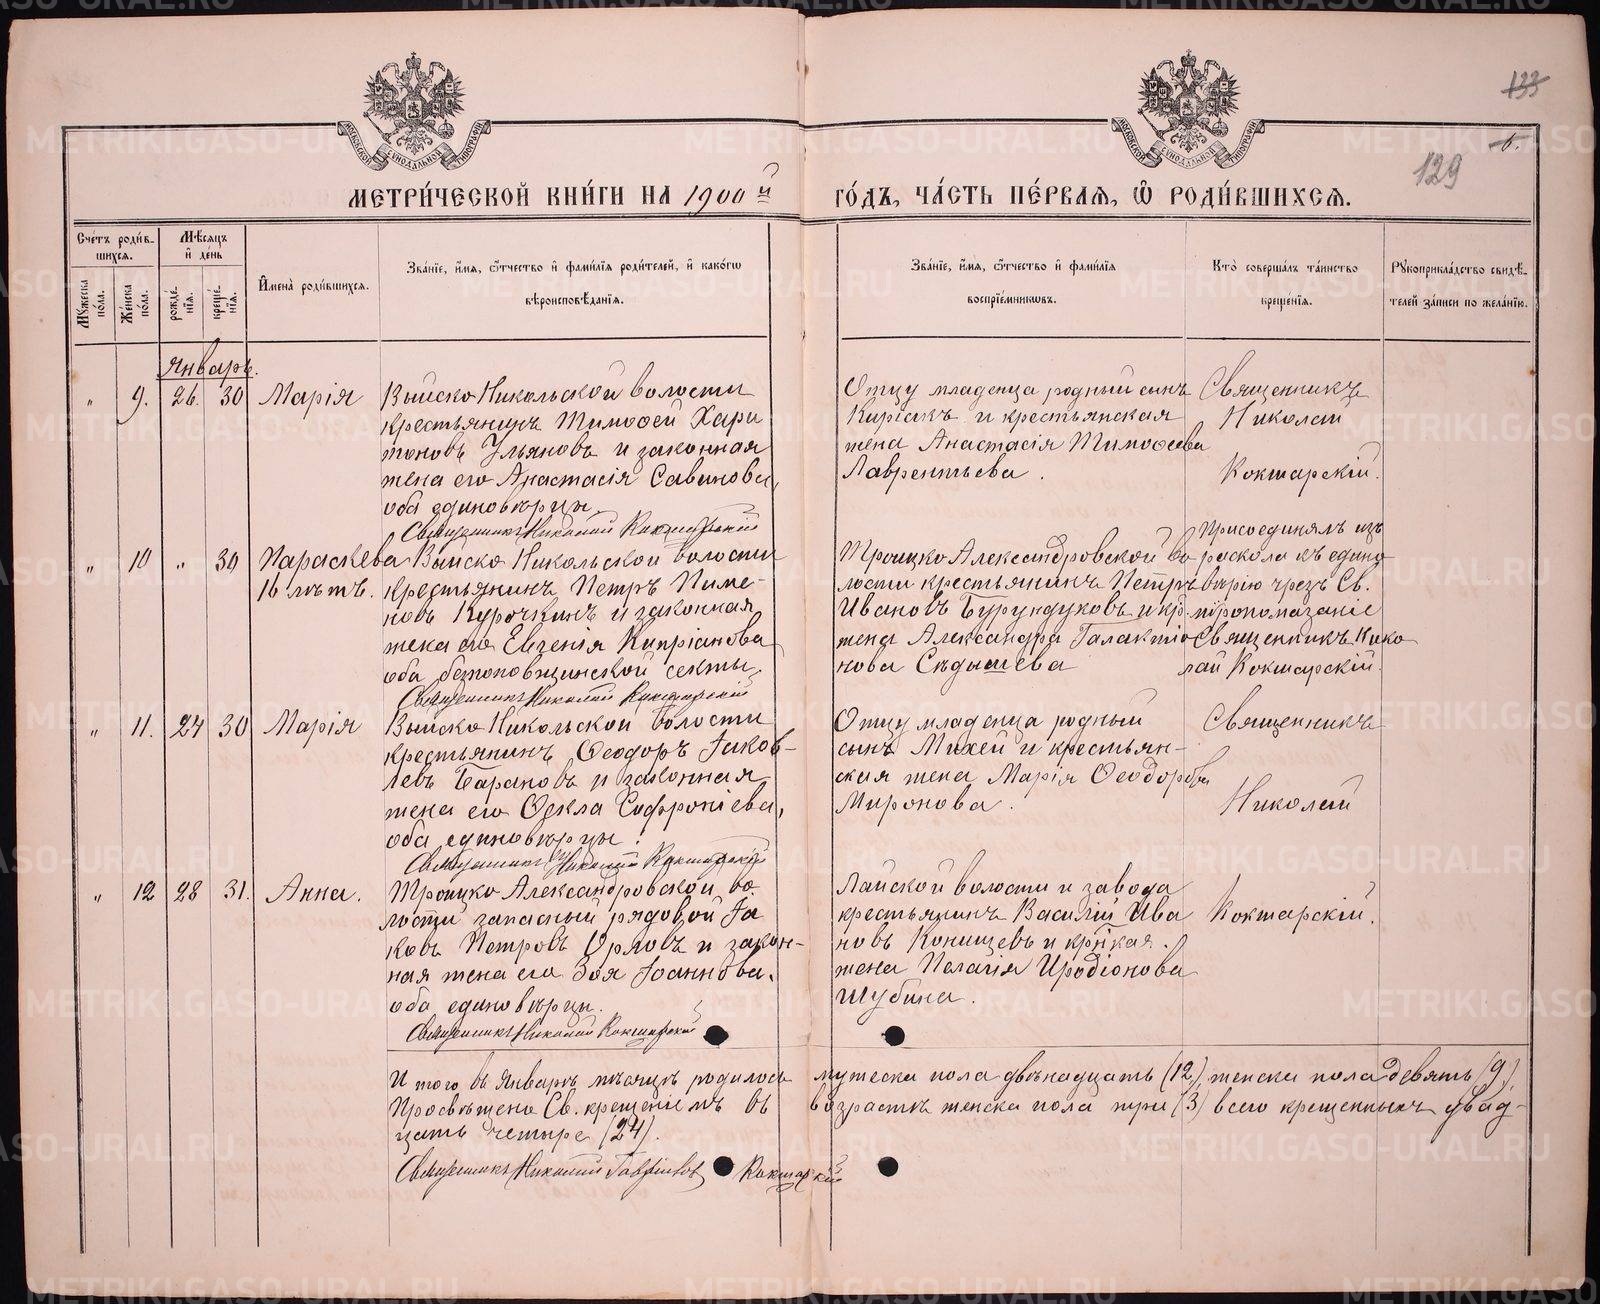 133
6.
129
МОСКОВСКОЙ СѴНОДАЛЬНОЙ ТИПОГРАФІИ
МОСКОВСКОЙ СѴНОДАЛЬНОЙ ТИПОГРАФІИ
МЕТРИ́ЧЕСКОЙ КНИ́ГИ НА 1900й ГО́ДЪ, ЧА́СТЬ ПЕ́РВАЯ, Ѡ҆ РОДИ́ВШИХСѦ.
Сче́тъ роди́вшихсѧ.
Мꙋ́жеска по́ла.
Же́нска по́ла.
Мѣ́сѧцъ и҆ де́нь
рожде́нїѧ.
креще́нїѧ.
И҆мена̀ роди́вшихсѧ.
Зва́нїе, и҆́мѧ, ѻ҆́тчество и҆ фами́лїѧ роди́телей, и҆ како́гѡ
вѣроисповѣ́данїѧ.
Зва́нїе, и҆́мѧ, ѻ҆́тчество и҆ фами́лїѧ
воспрїе́мникѡвъ.
Кто̀ соверша́лъ та́инство
креще́нїѧ.
Рꙋкоприкла́дство свидѣ́телей за́писи по жела́нїю.
Январь.
" 9. 26. 30 Марія
Выйско Никольской волости
крестьянинъ Тимофей Хари
тоновъ Ульяновъ и законная
жена его Анастасія Савинова,
оба единовѣрцы.
Священникъ Николай Кокшарскій
Отцу младенца родный сынъ
Киріакъ и крестьянская
жена Анастасія Тимофеева
Лаврентьева.
Священникъ
Николай
Кокшарскій.
" 10 " 30 Параскева
16 лѣтъ.
Выйско Никольской волости
крестьянинъ Петръ Пиме-
новъ Курочкинъ и законная
жена его Евгенія Кипріанова
оба безпоповщинской секты.
Священникъ Николай Кокшарскій
Троицко Александровской во
лости крестьянинъ Петръ
Ивановъ Бурундуковъ и кр.
жена Александра Галактіо
нова Сѣдышева
Присоединялъ изъ
раскола къ едино
вѣрію чрезъ Св.
мѵропомазаніе
Священникъ Нико
лай Кокшарскій.
" 11. 24 30 Марія
Выйско Никольской волости
крестьянинъ Ѳеодоръ Іаков-
левъ Барановъ и законная
жена его Ѳекла Софроніева,
оба единовѣрцы.
Священникъ Николай Кокшарскій
Отцу младенца родный
сынъ Михей и крестьян-
ская жена Марія Ѳеодорова
Миронова.
Священникъ
Николай
" 12 28 31. Анна.
Троицко Александровской во
лости запасный рядовой Іа
ковъ Петровъ Орловъ и закон-
ная жена его Зоя Іоаннова.
оба единовѣрцы.
Священникъ Николай Кокшарскій
Лайской волости и завода
крестьянинъ Василій Ива
новъ Конищевъ и крѣкая.
жена Пелагія Иродіонова
Шубина.
Кокшарскій.
И того въ Январѣ мѣсяцѣ родилось мужеска пола двѣнадцать (12), женска пола девять (9),
Просвѣщено Св. крещеніемъ въ возрастѣ женска пола три (3) всего крещенныхъ двад-
цать четыре (24).
Священникъ Николай Гавріиловъ Кокшарскій
METRIKI.GASO-URAL.RU